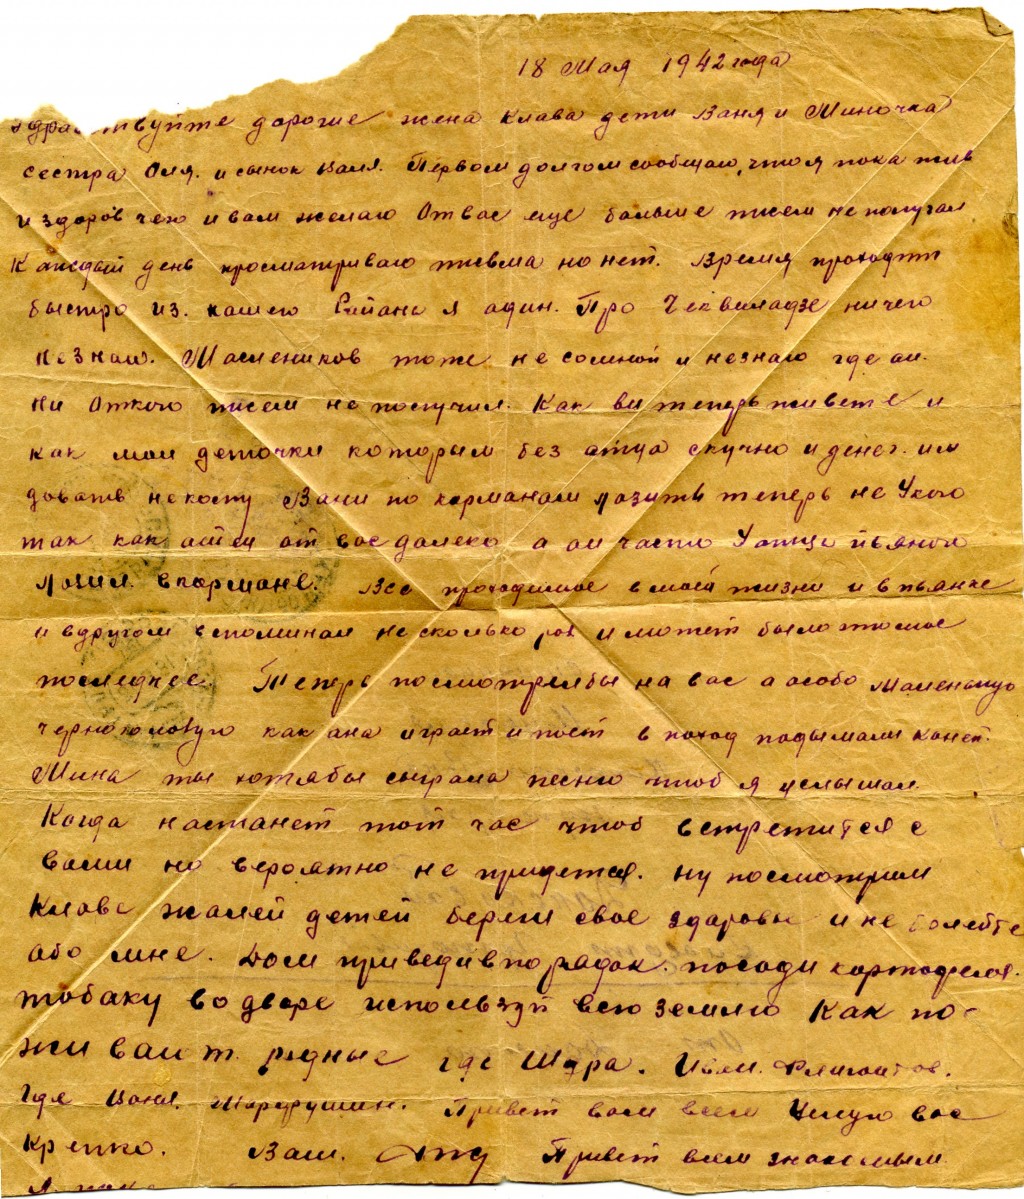 18 Мая 1942 года
здравствуйте дорогие жена Клава дети Ваня и Миночка
сестра Оля. и сынок Коля. Первом долгом сообщаю, что я пока жив
и здоров чего и вам желаю От вас еще больше писем не получал
Каждый день просматриваю письма но нет. Время проходит
быстро из. нашего Района я адин. Про Чеквиладзе ничего
незнаю. Маслеников тоже не сомной и незнаю где он.
ни Откого писем не получил. Как ви теперь живете и
как мои деточки которым без атца скучно и денег. им
довать некому Вани по карманам лозить теперь не Укого
так как атец от вас далеко а он часто У атца пьяной
лозил. в кармане. Все проходимое в моей жизни и в пьянке
и в другом вспоминал несколько роз и может было это мое
последнее. Теперь посмотрелбы на вас а особо маленькую
черноголовую как ана играет и поёт в поход падымали коней.
Мина ты хотябы сыграла песню чтоб я услышал
Когда настанет тот час чтоб встретится с
вами но вероятно не придется. ну посмотрим
Клава жалей детей береги свое здаровье и не болейте
або мне. Дом приведи в порядок. посади картофеля.
тобаку во дворе используй всю землю Как по-
живают. родные где Шура. Иван.
где Ваня. Привет вам всем Целую вас
Крепко. Ваш. Привет всем знакомым